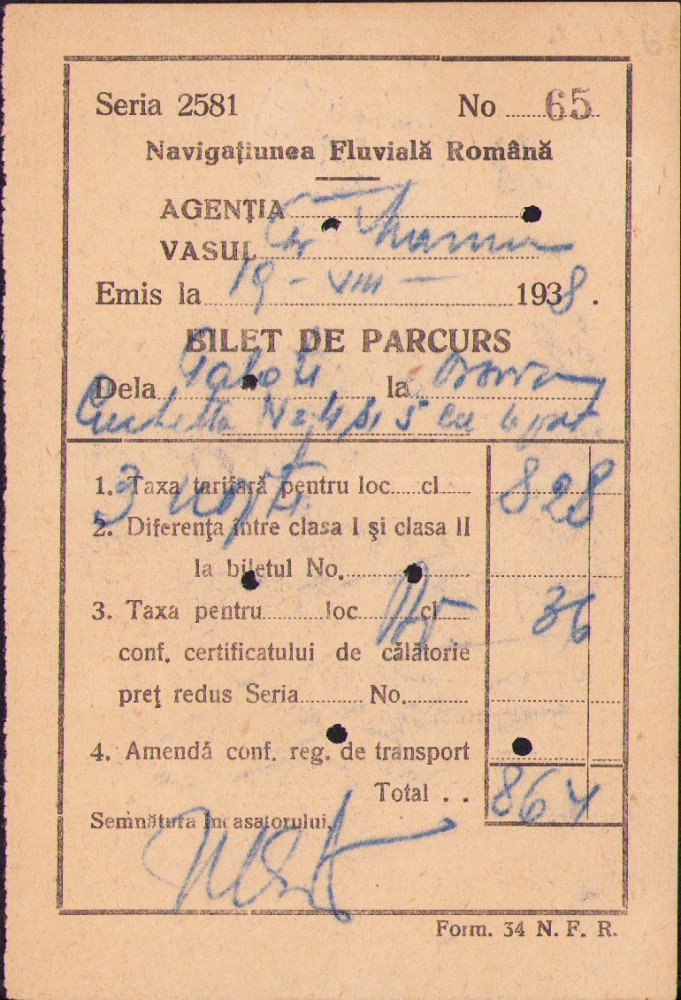 Seria 2581 No 65
Navigaţiunea Fluvială Română
AGENŢIA
VASUL
Emis la 19 - VIII - 1938.
BILET DE PARCURS
Dela la
4 5 cu
1. Taxa tarifară pentru loc.....cl..... 828
3 nopți
2. Diferenţa între clasa I şi clasa II
la biletul No.
3. Taxa pentru loc cl 36
conf. certificatului de călătorie
preţ redus Seria No.
4. Amendă conf. reg. de transport
Total . . 864
Semnătura încasatorului,
Form. 34 N. F. R.